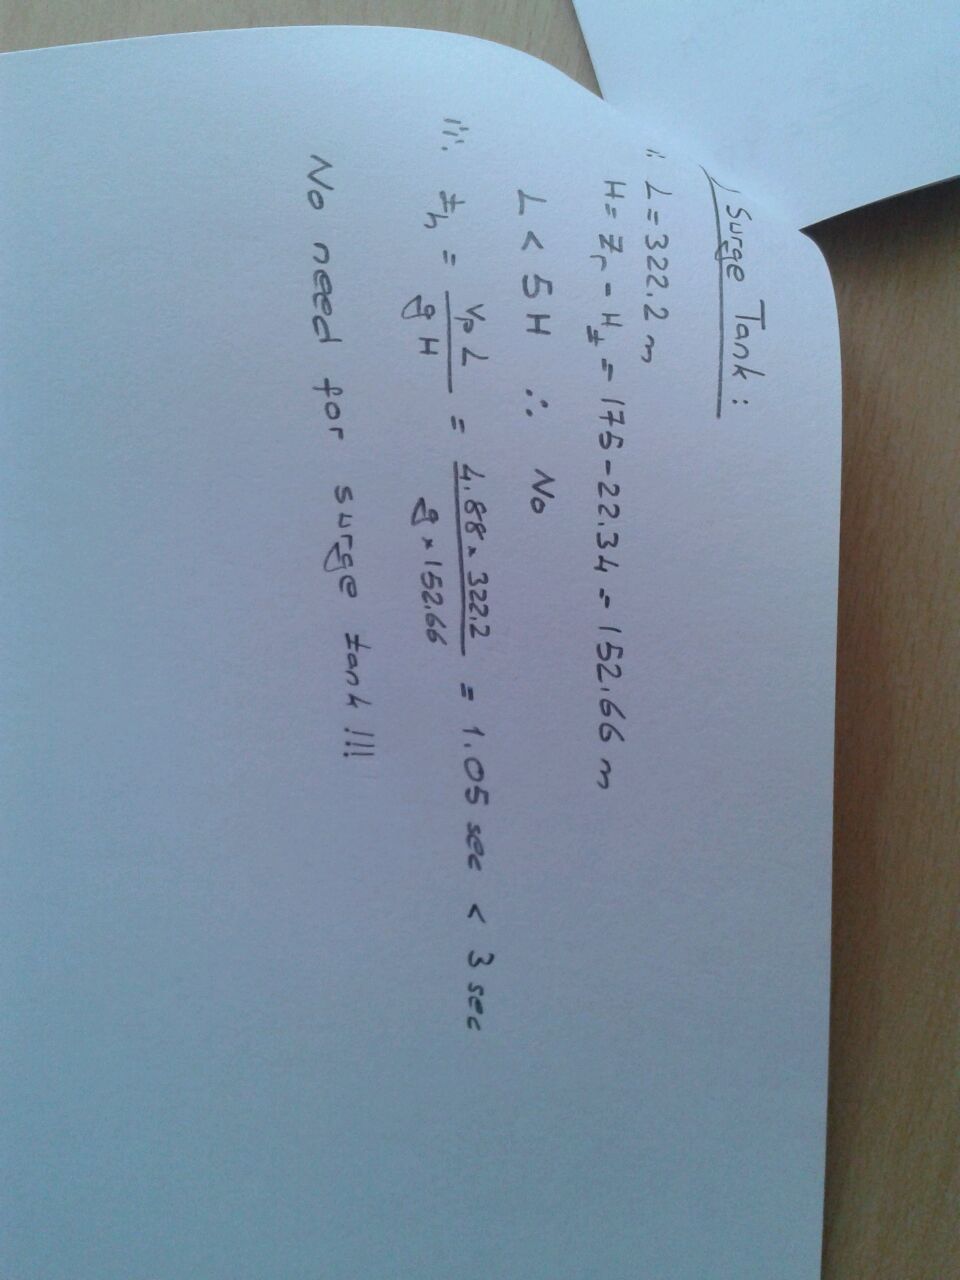 Surge Tank :
∵ L = 322.2 m
H = Zr - Ht = 175 - 22.34 = 152.66 m
L < 5H ∴ No
th = VpL / gH = 4.88 × 322.2 / g × 152.66 = 1.05 sec < 3 sec
No need for surge tank !!!